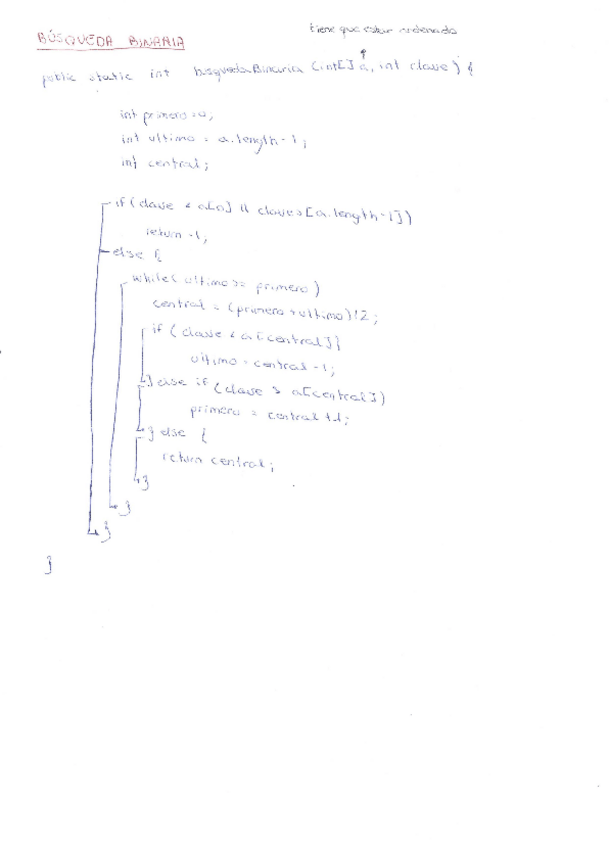 tiene que estar ordenado
BÚSQUEDA BINARIA
public static int busquedaBinaria (int[] a, int clave) {
int primero=0;
int ultimo = a.length-1;
int central;
if (clave < a[0] || clave>[a.length-1])
return -1;
else {
while( ultimo >= primero)
central = (primero+ultimo)/2;
if (clave < a[central]){
ultimo = central -1;
} else if (clave > a[central])
primero = central +1;
} else {
return central;
}
}
}
}